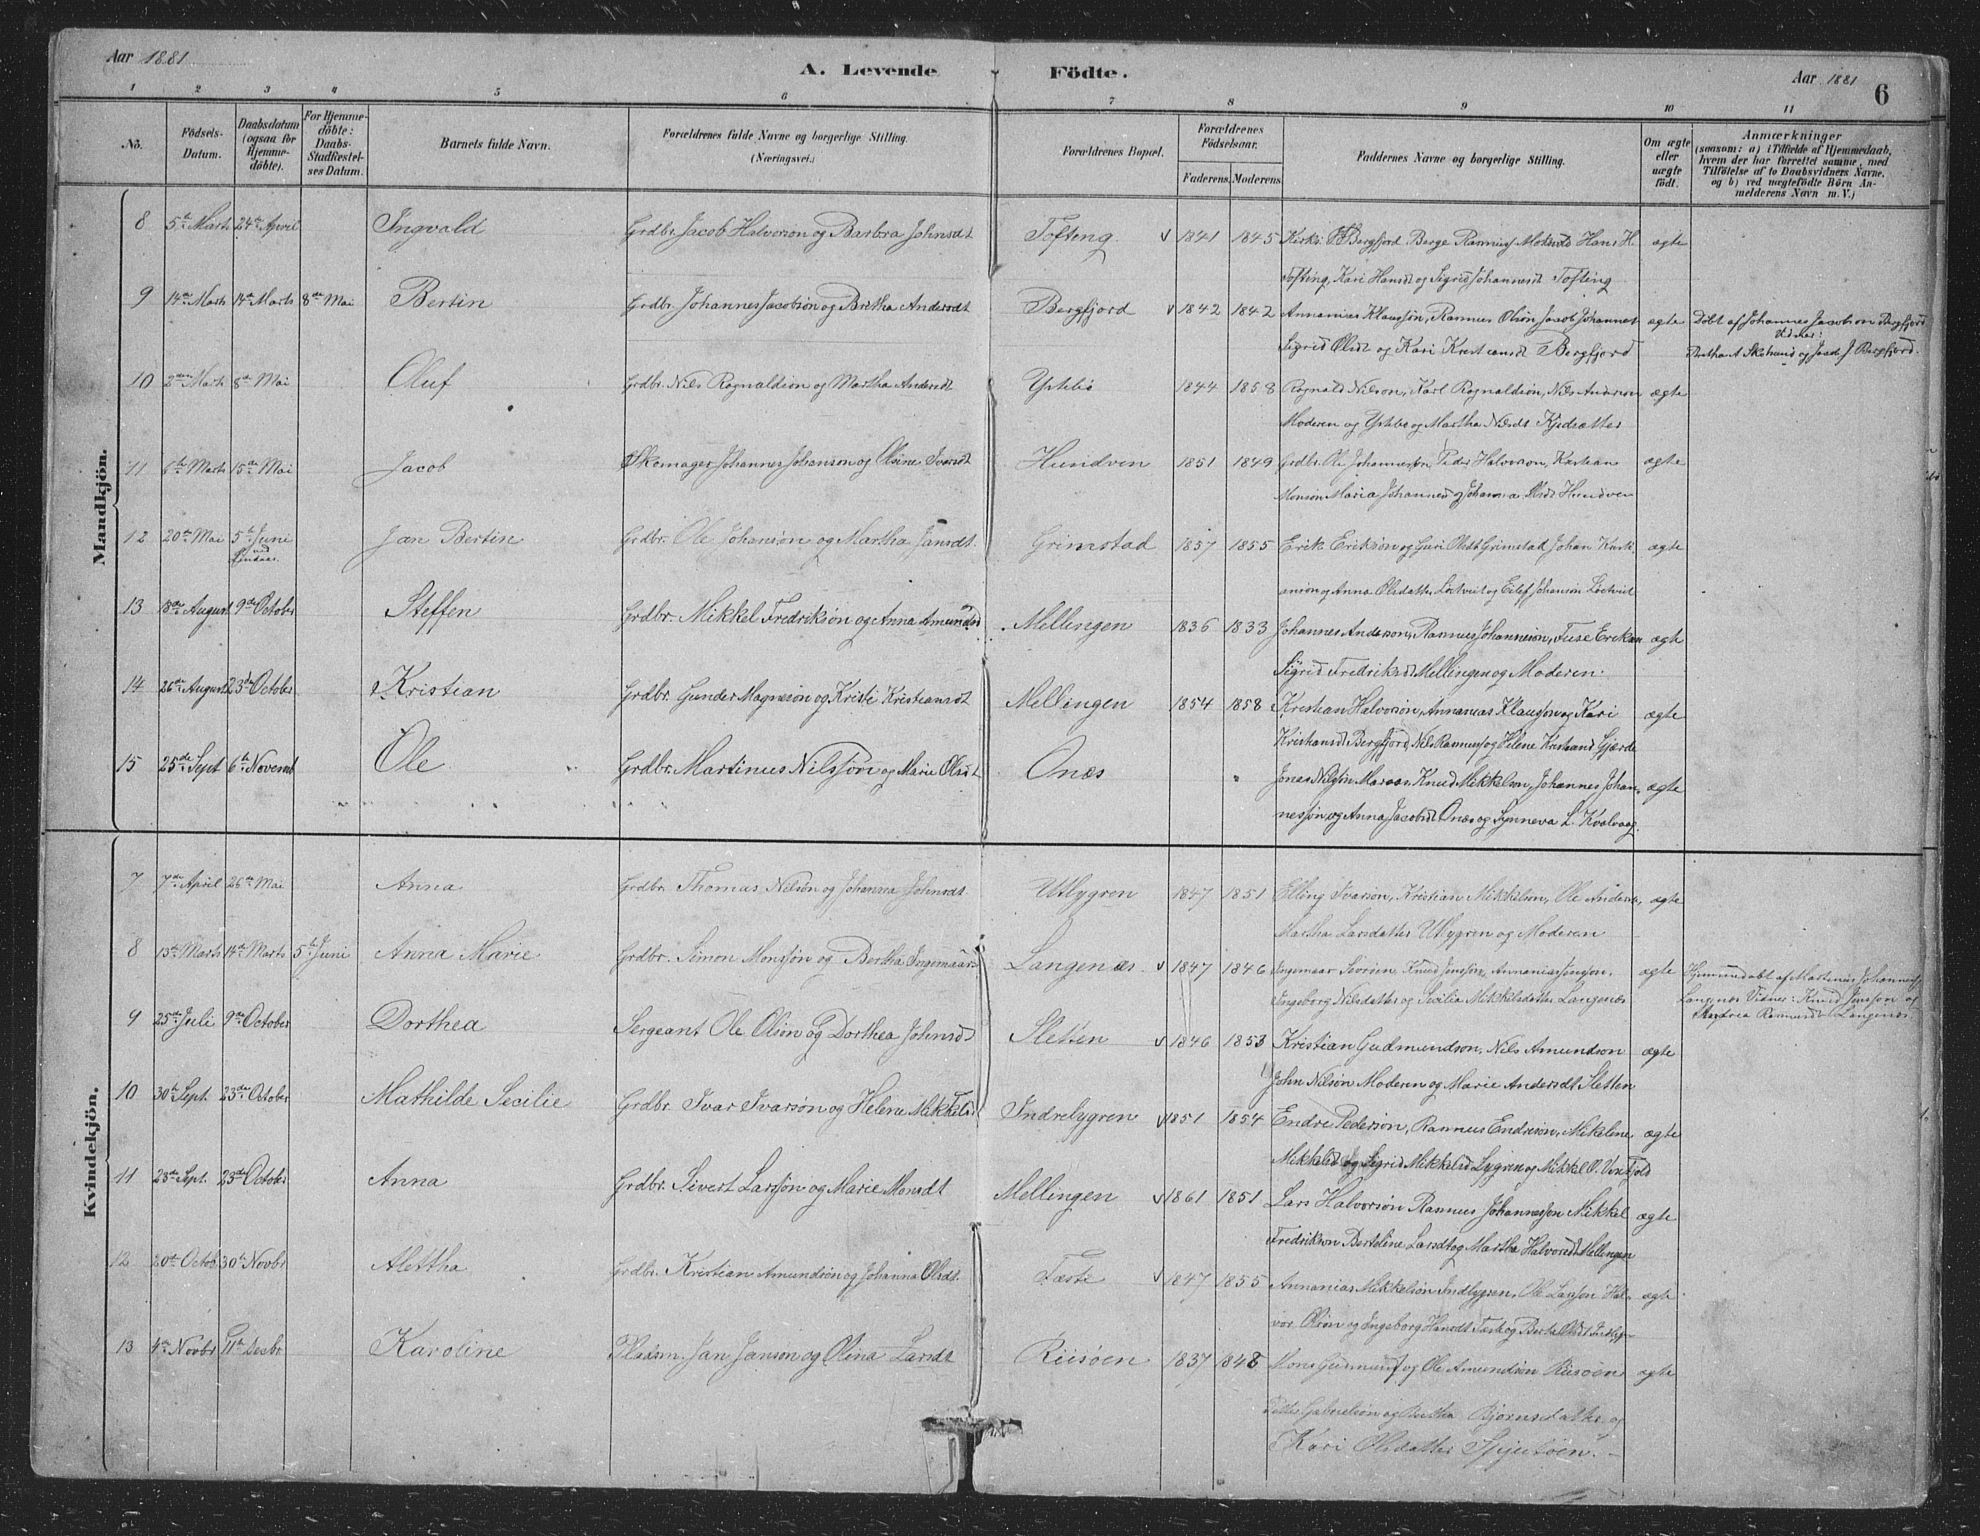 Aar 1881
A. Levende Födte.
Aar 1881
6
1 2 3 4 5 6 7 8 9 10 11
No.
Födsels-Datum.
Daabsdatum (ogsaa for Hjemme-döbte).
For Hjemme-döbte: Daabs-Stadfæstel-ses Datum.
Barnets fulde Navn.
Forældrenes fulde Navne og borgerlige Stilling. (Næringsvei.)
Forældrenes Bopæl.
Forældrenes Födselsaar.
Faderens. Moderens.
Faddernes Navne og borgerlige Stilling.
Om ægte eller uægte födt.
Anmærkninger
(saasom: a) i Tilfælde af Hjemmedaab,
hvem der har forrettet samme, med
Tilföielse af to Daabsvidners Navne,
og b) ved uægtefödte Börn An-
melderens Navn m. V.)
Mandkjön.
8 5te Marts 24de April Ingvald Grdbr. Jacob Halvorson og Barbra Johnsdt Tofting 1841 1845 Berge Rasmus Hans H. ægte
Tofting, Kari Hansdt og Sigrid Johannesdt Tofting
9 14de Marts 14de Marts 8de Mai Bertin Grdbr. Johannes Jacobsön og Bretha Andersdt Bergfjord 1842 1842 Annanias Klausson, Rasmus Olsön Jacob Johannes ægte Döbt af Johannes Jacobson Bergfjord
Sigrid Olsdt og Kari Kristiansdt Bergfjord
10 2den Marts 8de Mai Oluf Grdbr. Nils Rognaldsön og Martha Andersdt Ystebö 1844 1858 Rognald Nilson, Karl Rognaldsön, Nils Anderson ægte
Moderen og Martha Nilsdt
11 6te Marts 15de Mai Jacob Skomager Johannes Johanson og Olsine Ivarsdt Hundven 1851 1849 Grdbr. Ole Johannesson, Peder Halvorson, Kristian ægte
Monson Maria Johannesd og Johanna Olsdt Hundven
12 20de Mai 5te Juni Jan Bertin Grdbr. Ole Johanson og Martha Jansdt Grimstad 1857 1855 Erik Erikson og Guri Olsdt Grimstad Johan Kristi ægte
anson og Anna Olsdatter Loctveit og Johanson Loctveit
13 18de August 9de October Steffen Grdbr. Mikkel Fredriksön og Anna Amundsd Mellingen 1836 1833 Johannes Anderson, Rasmus Johanneson, Tuse Erikson ægte
Sigrid Fredriksdt Mellingen og Moderen.
14 26de August 23de October Kristian Grdbr. Gunder Magneson og Kristi Kristiansdt Mellingen 1854 1858 Kristian Halvorson, Annanias Klausson og Kari ægte
Kristiansdt Bergfjord, Nils Rasmus og Helene Kristiansd Gjærde
15 25de Sept 6te Novemb Ole Grdbr. Martinus Nilsson og Marie Olsdt Onæs " Jonas Nilsson Knud Mikkelson, Johannes Johan- ægte
nesson og Anna Jacobsdt Onæs og Synneva L. Kvalvaag.
Kvindekjön.
7 7de April 26de Mai Anna Grdbr. Thomas Nilsön og Johanna Johnsdt Utlygren 1847 1851 Elling Ivarson, Kristian Mikkelson, Ole Anders ægte
Martha Larsdatter Utlygren og Moderen
8 13de Marts 14de Marts 5te Juni Anna Marie Grdbr. Simon Monsson og Bertha Ingemaars Langenæs 1847 1846 Ingemaar Knud Jensson, Annanias Jensson. ægte Hjemmedöbt af Martinus Johanness
Ingeborg Nilsdatter og Secilia Mikkelsdatter Langenæs Langenæs Vidner: Knud Jensson og
9 25de Juli 9de October Dorthea Sergeant Ole Olson og Dorthea Johnsd Sletten 1846 1853 Kristian Gudmundson, Nils Amundson ægte
John Nilson Moderen og Marie Andersdt Sletten
10 30te Sept. 23de October Mathilde Secilie Grdbr. Ivar Ivarsön og Helene Mikkelsd Indrelygren 1851 1854 Endre Pederson, Rasmus Endreson, Mikeline ægte
Mikkelsd og Sigrid Mikkelsd Lygren og Mikkel O.
11 23de Sept. 23de Octobr Anna Grdbr. Sivert Larsson og Marie Monsdt Mellingen 1861 1851 Lars Halvorson Rasmus Johannesson Mikkel ægte
Fredrikson Berteline Larsdt og Martha Halvorsdt Mellingen
12 20de Octob 30te Novbr Alettha Grdbr. Kristian Amundsön og Johanna Olsdt Tæste 1847 1855 Annanias Mikkelson Indlygren, Ole Larsson Hal- ægte
vor Olson og Ingeborg Hansdt Tæste og Berte Olsdt
13 4de Novbr 11te Decbr Karoline Pladsm. Jan Janson og Olina Larsdt Riisöen 1837 1848 Mons og Ole Amundson Riisöen ægte
Gabrielson og Bertha Björnsdatter og
Kari Olsdatter